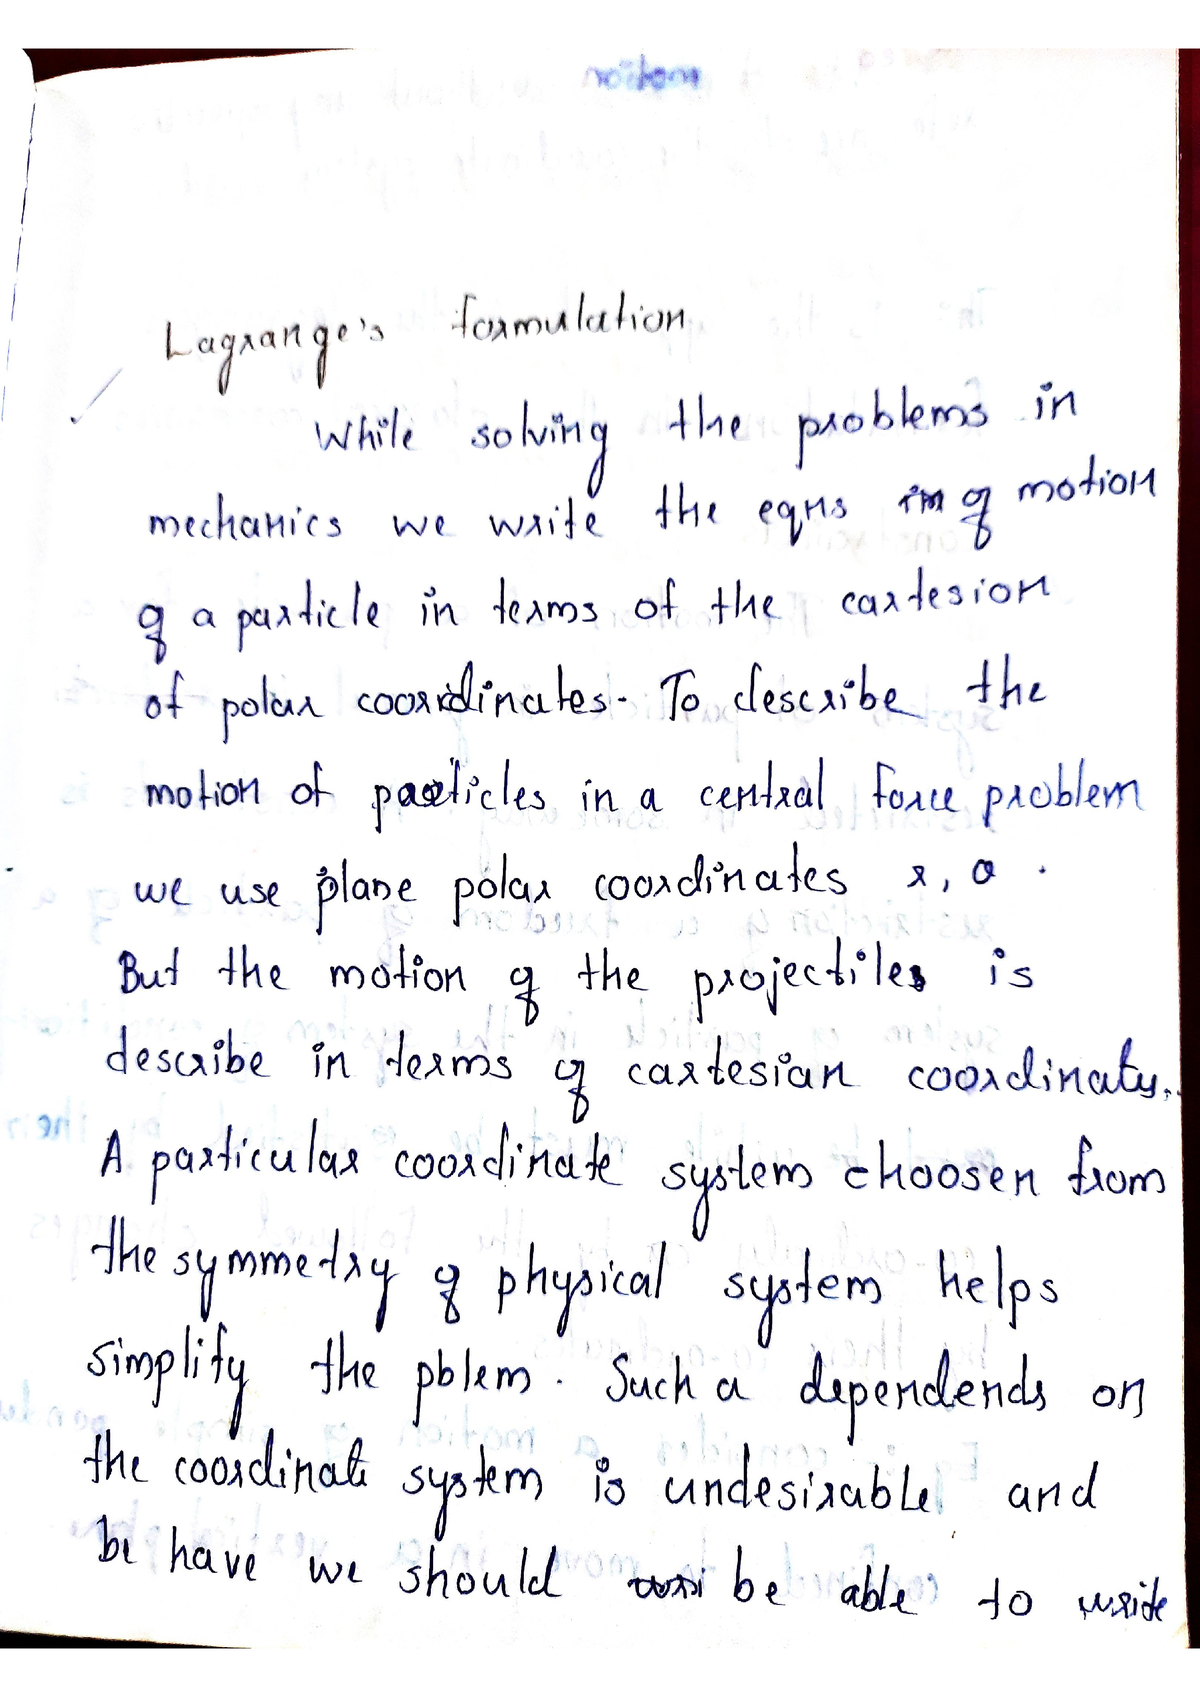 motion
Lagrange's formulation
While solving the problems in
mechanics we write the eqns of motion
of a particle in terms of the cartesion
of polar coordinates. To describe the
motion of particles in a central force problem
we use plane polar coordinates r, θ.
But the motion of the projectiles is
describe in terms of cartesian coordinates.
A particular coordinate system choosen from
the symmetry of physical system helps
simplify the pblem. Such a dependends on
the coordinate system is undesirable and
be have we should be able to write